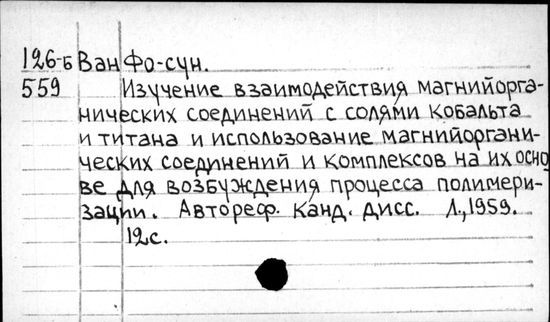 126-Б Ван Фо-сун.
559 Изучение взаимодействия магнийорга-
нических соединений с солями кобальта
и титана и использование магнийоргани-
ческих соединений и комплексов на их осно
ве для возбуждения процесса полимери-
зации. Автореф. канд. дисс. Л., 1959.
12с.